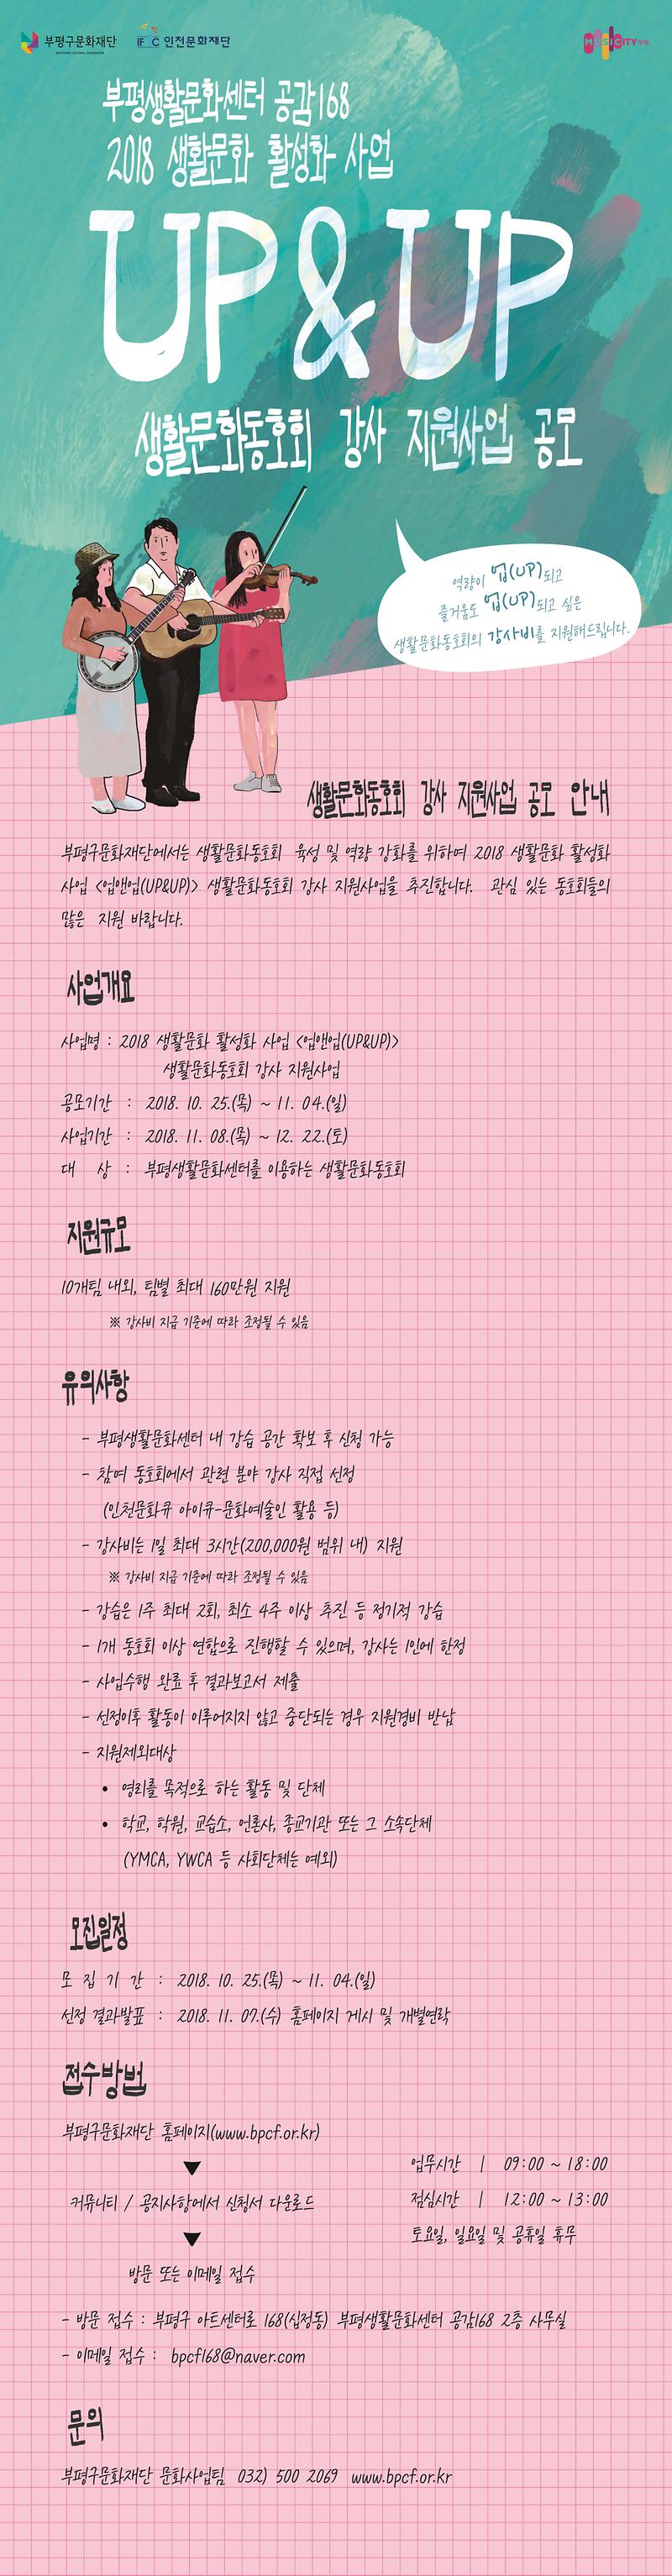 부평구문화재단
인천문화재단
MUSICITY 부평
부평생활문화센터 공감168
2018 생활문화 활성화 사업
UP&UP
생활문화동호회 강사 지원사업 공모
역량이 업(UP)되고
즐거움도 업(UP)되고 싶은
생활문화동호회의 강사비를 지원해드립니다.
생활문화동호회 강사 지원사업 공모 안내
부평구문화재단에서는 생활문화동호회 육성 및 역량 강화를 위하여 2018 생활문화 활성화
사업 <업앤업(UP&UP)> 생활문화동호회 강사 지원사업을 추진합니다. 관심 있는 동호회들의
많은 지원 바랍니다.
사업개요
사업명 : 2018 생활문화 활성화 사업 <업앤업(UP&UP)>
생활문화동호회 강사 지원사업
공모기간 : 2018. 10. 25.(목) ~ 11. 04.(일)
사업기간 : 2018. 11. 08.(목) ~ 12. 22.(토)
대 상 : 부평생활문화센터를 이용하는 생활문화동호회
지원규모
10개팀 내외, 팀별 최대 160만원 지원
※ 강사비 지급 기준에 따라 조정될 수 있음
유의사항
- 부평생활문화센터 내 강습 공간 확보 후 신청 가능
- 참여 동호회에서 관련 분야 강사 직접 선정
(인천문화큐 아이큐-문화예술인 활용 등)
- 강사비는 1일 최대 3시간(200,000원 범위 내) 지원
※ 강사비 지급 기준에 따라 조정될 수 있음
- 강습은 1주 최대 2회, 최소 4주 이상 추진 등 정기적 강습
- 1개 동호회 이상 연합으로 진행할 수 있으며, 강사는 1인에 한정
- 사업수행 완료 후 결과보고서 제출
- 선정이후 활동이 이루어지지 않고 중단되는 경우 지원경비 반납
- 지원제외대상
• 영리를 목적으로 하는 활동 및 단체
• 학교, 학원, 교습소, 언론사, 종교기관 또는 그 소속단체
(YMCA, YWCA 등 사회단체는 예외)
모집일정
모 집 기 간 : 2018. 10. 25.(목) ~ 11. 04.(일)
선정 결과발표 : 2018. 11. 07.(수) 홈페이지 게시 및 개별연락
접수방법
부평구문화재단 홈페이지(www.bpcf.or.kr)
▼
커뮤니티 / 공지사항에서 신청서 다운로드
▼
방문 또는 이메일 접수
업무시간 | 09:00 ~ 18:00
점심시간 | 12:00 ~ 13:00
토요일, 일요일 및 공휴일 휴무
- 방문 접수 : 부평구 아트센터로 168(십정동) 부평생활문화센터 공감168 2층 사무실
- 이메일 접수 : bpcf168@naver.com
문의
부평구문화재단 문화사업팀 032) 500 2069 www.bpcf.or.kr